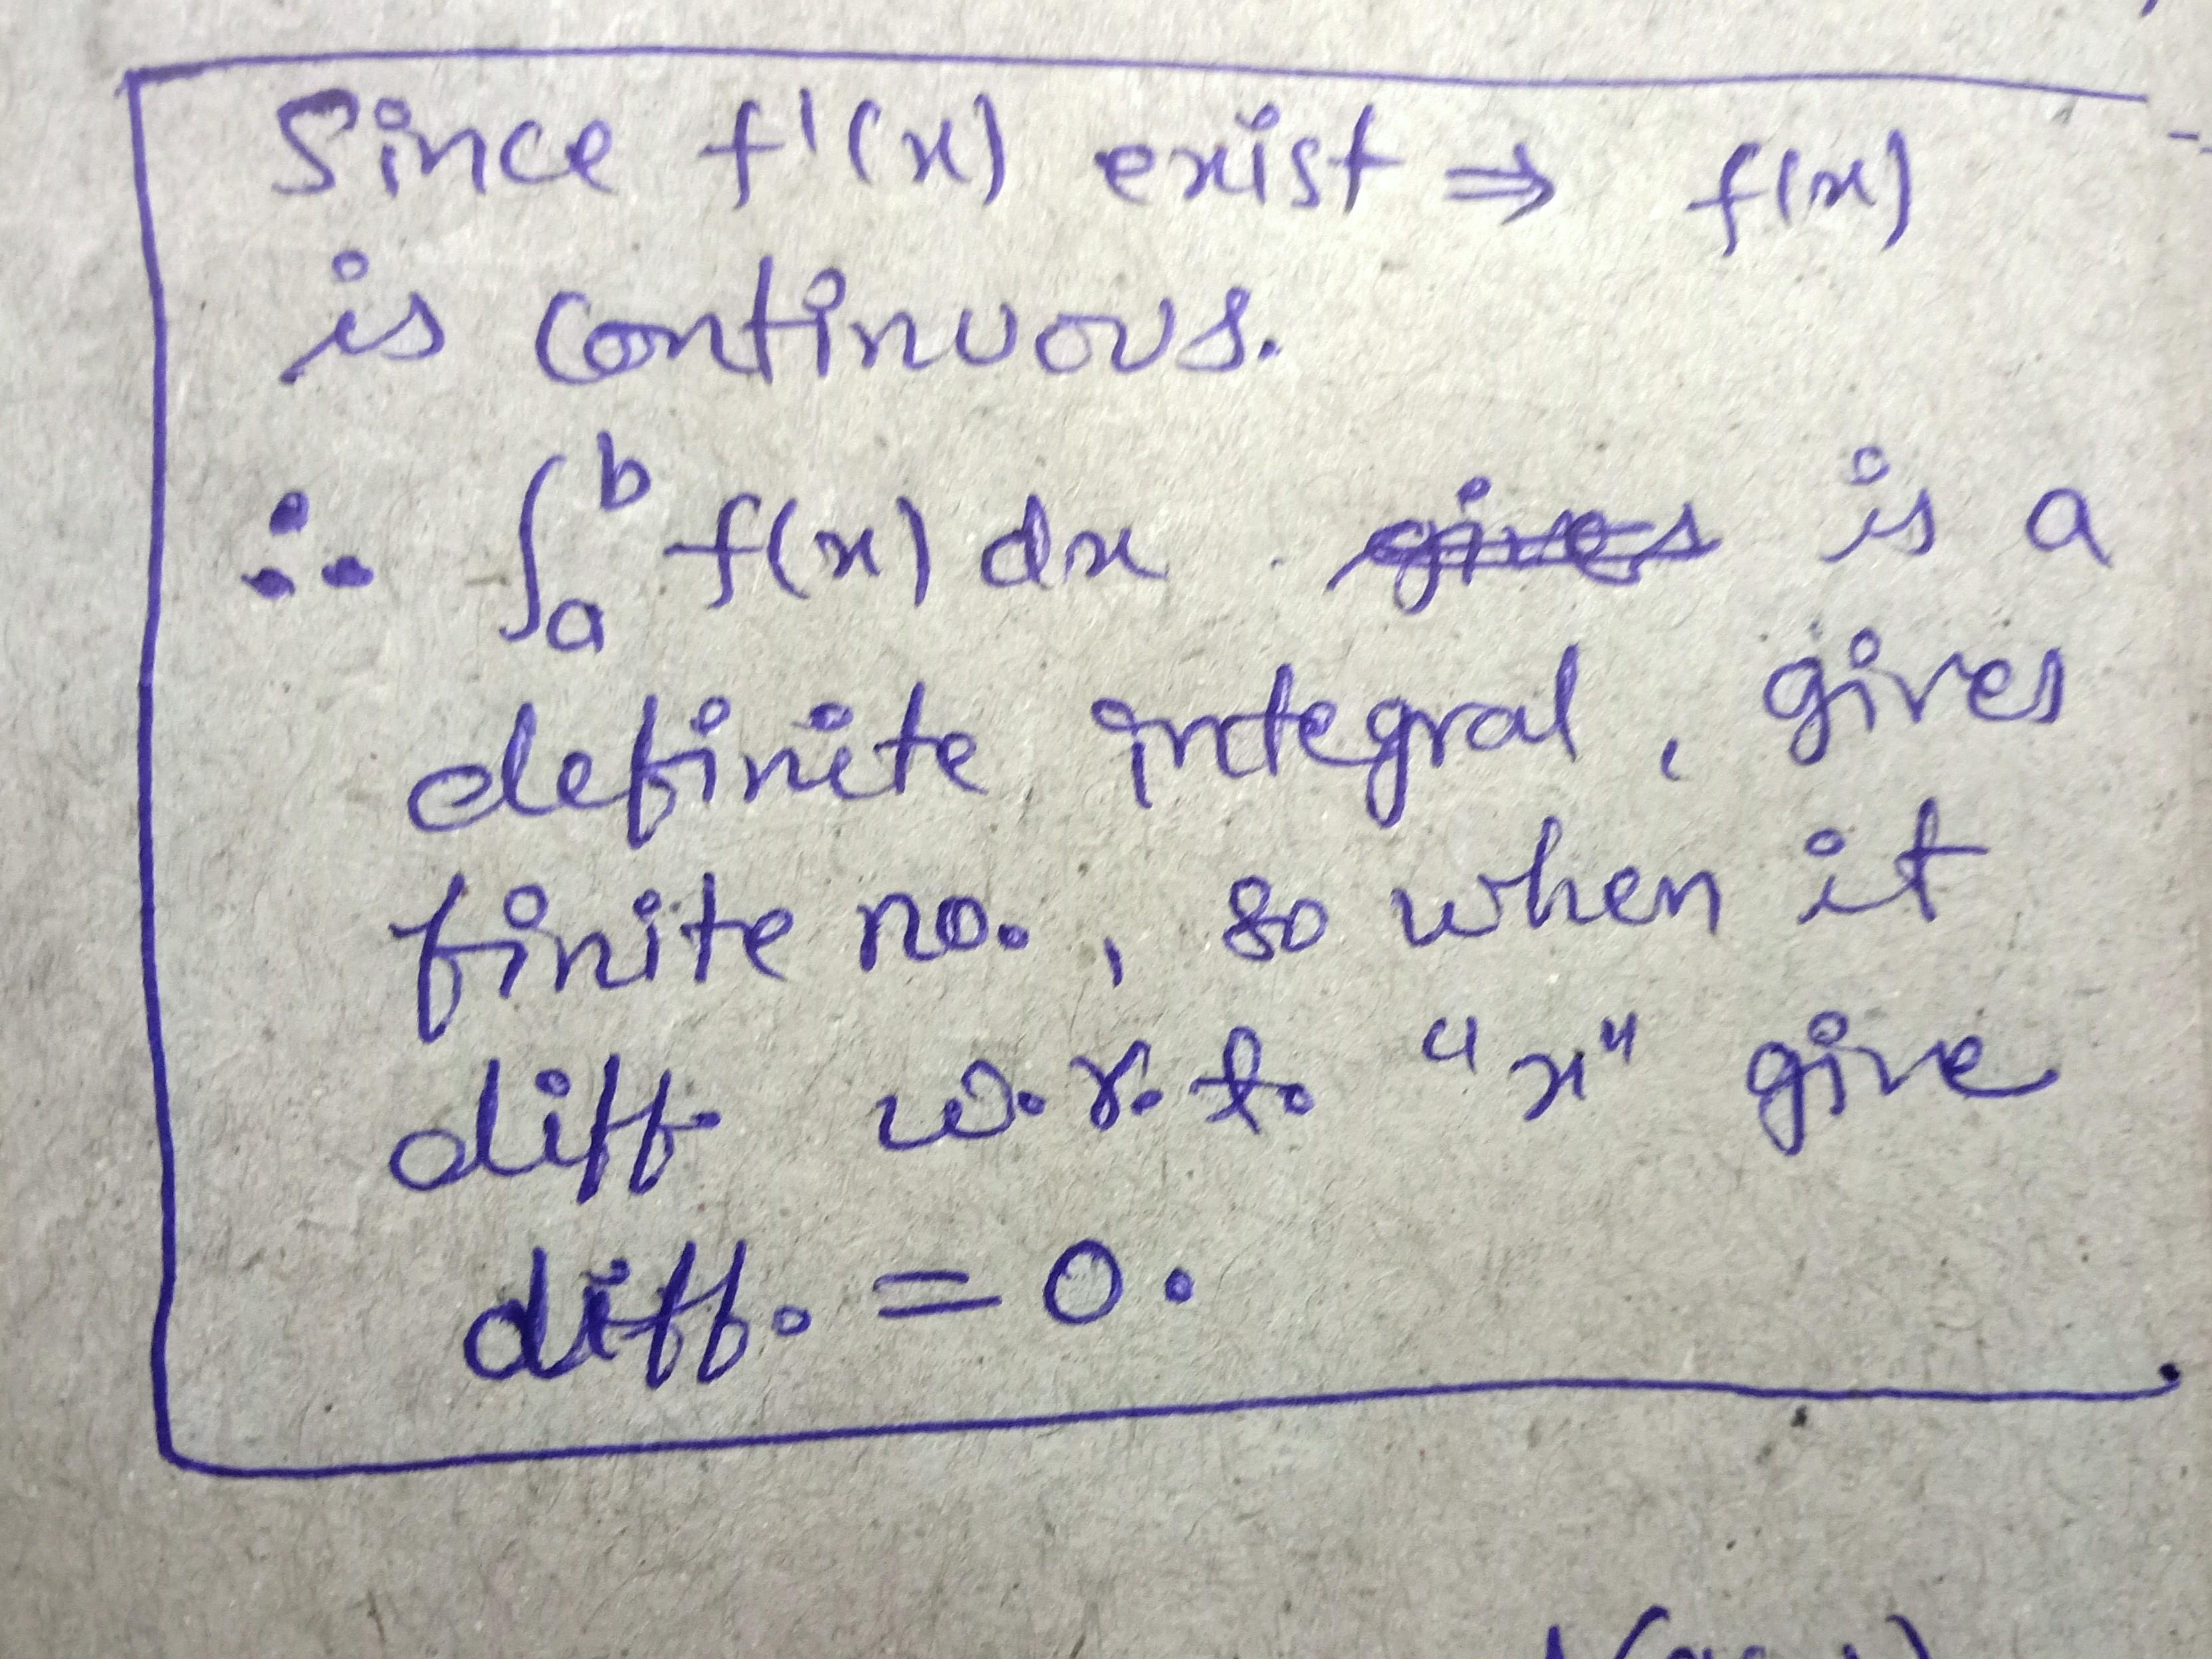 Since f'(x) exist ⇒ f(x)
is continuous.
∴ ∫ₐᵇ f(x) dx gives is a
definite integral, gives
finite no., so when it
diff. w.r.t. "x" give
diff. = 0.